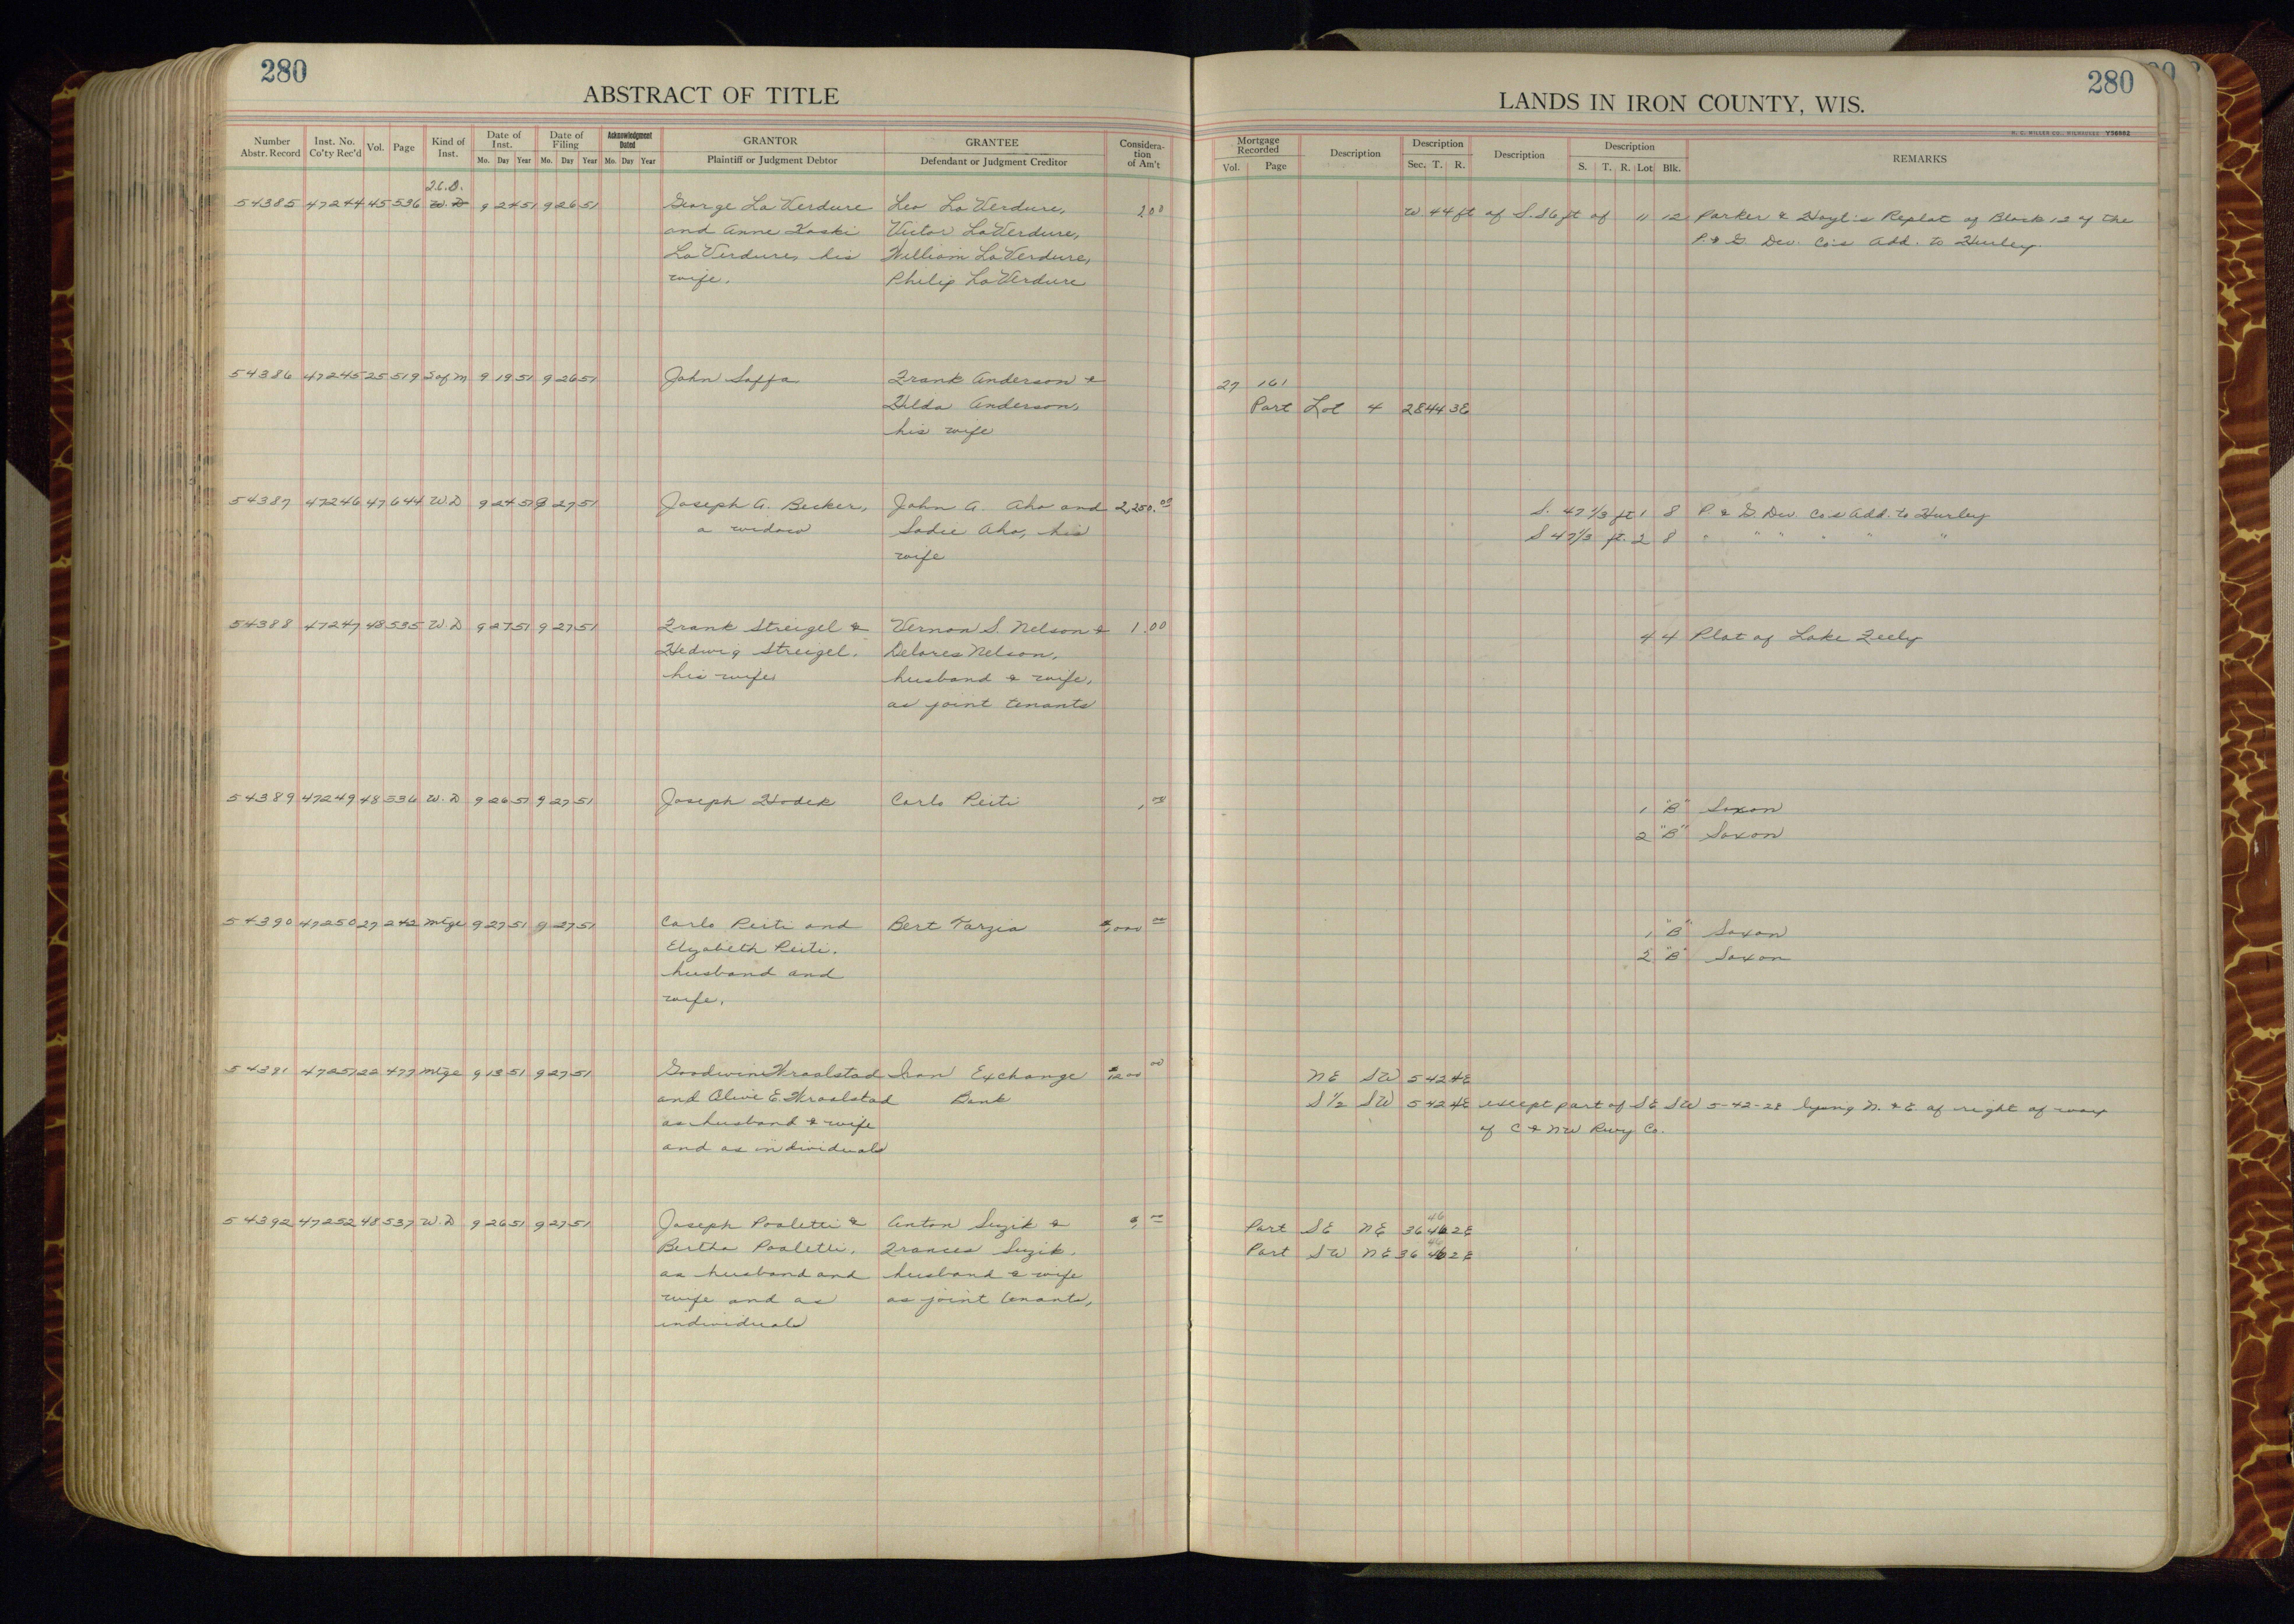 280
ABSTRACT OF TITLE
Number Abstr. Record Inst. No. Co'ty Rec'd Vol. Page Kind of Inst. Date of Inst. Mo. Day Year Date of Filing Mo. Day Year Acknowledgment Dated Mo. Day Year GRANTOR Plaintiff or Judgment Debtor GRANTEE Defendant or Judgment Creditor Considera-tion of Am't
280
LANDS IN IRON COUNTY, WIS.
H. C. MILLER CO., MILWAUKEE Y56962
Mortgage Recorded Vol. Page Description Description Sec. T. R. Description Description S. T. R. Lot Blk. REMARKS
2.C.D.
54385 47244 45 536 W.D 9 24 51 9 26 51 George La Verdure Leo La Verdure, 200 W 44 ft of S. 56 ft of 11 12 Parker & Hoyl's Replat of Block 12 of the
and Anne Koski Victor LaVerdure, P. & G. Dev. Co's Add. to Hurley.
LaVerdure, his William LaVerdure,
wife. Philip LaVerdure
54386 47245 25 519 S of M 9 19 51 9 26 51 John Saffa Frank Anderson & 27 161
Hilda Anderson, Part Lot 4 28 44 3E
his wife
54387 47246 47 644 W.D 9 24 51 9 27 51 Joseph A. Becker, John A. Aho and 2,250.00 S. 47 1/3 ft 1 8 P. & G. Dev. Co's Add. to Hurley
a widow Sadie Aho, his S 47 1/3 ft. 2 8 " " " " " "
wife
54388 47247 48 535 W.D 9 27 51 9 27 51 Frank Streigel & Vernon S. Nelson & 1.00 4 4 Plat of Lake Feely
Hedwig Streigel. Delores Nelson,
his wife husband & wife,
as joint tenants
54389 47249 48 536 W.D 9 26 51 9 27 51 Joseph Hodek Carlo Peiti 1.00 1 "B" Saxon
2 "B" Saxon
54390 47250 27 242 Mtge 9 27 51 9 27 51 Carlo Peiti and Bert Tarzia 1 "B" Saxon
Elizabeth Peiti. 2 "B" Saxon
husband and
wife.
54391 47251 22 477 Mtge 9 13 51 9 27 51 Goodwin Kraalstad Iron Exchange 1200 00 NE SW 5 42 4E
and Olive E. Kraalstad Bank S 1/2 SW 5 42 4E except part of SE SW 5-42-2E lying N. & E. of right of way
as husband & wife of C & NW Rwy Co.
and as individuals
54392 47252 48 537 W.D 9 26 51 9 27 51 Joseph Paoletti & Anton Suzik & Part SE NE 36 46 2E
Bertha Paoletti. Frances Suzik, Part SW NE 36 46 2E
as husband and husband & wife
wife and as as joint tenants,
individuals